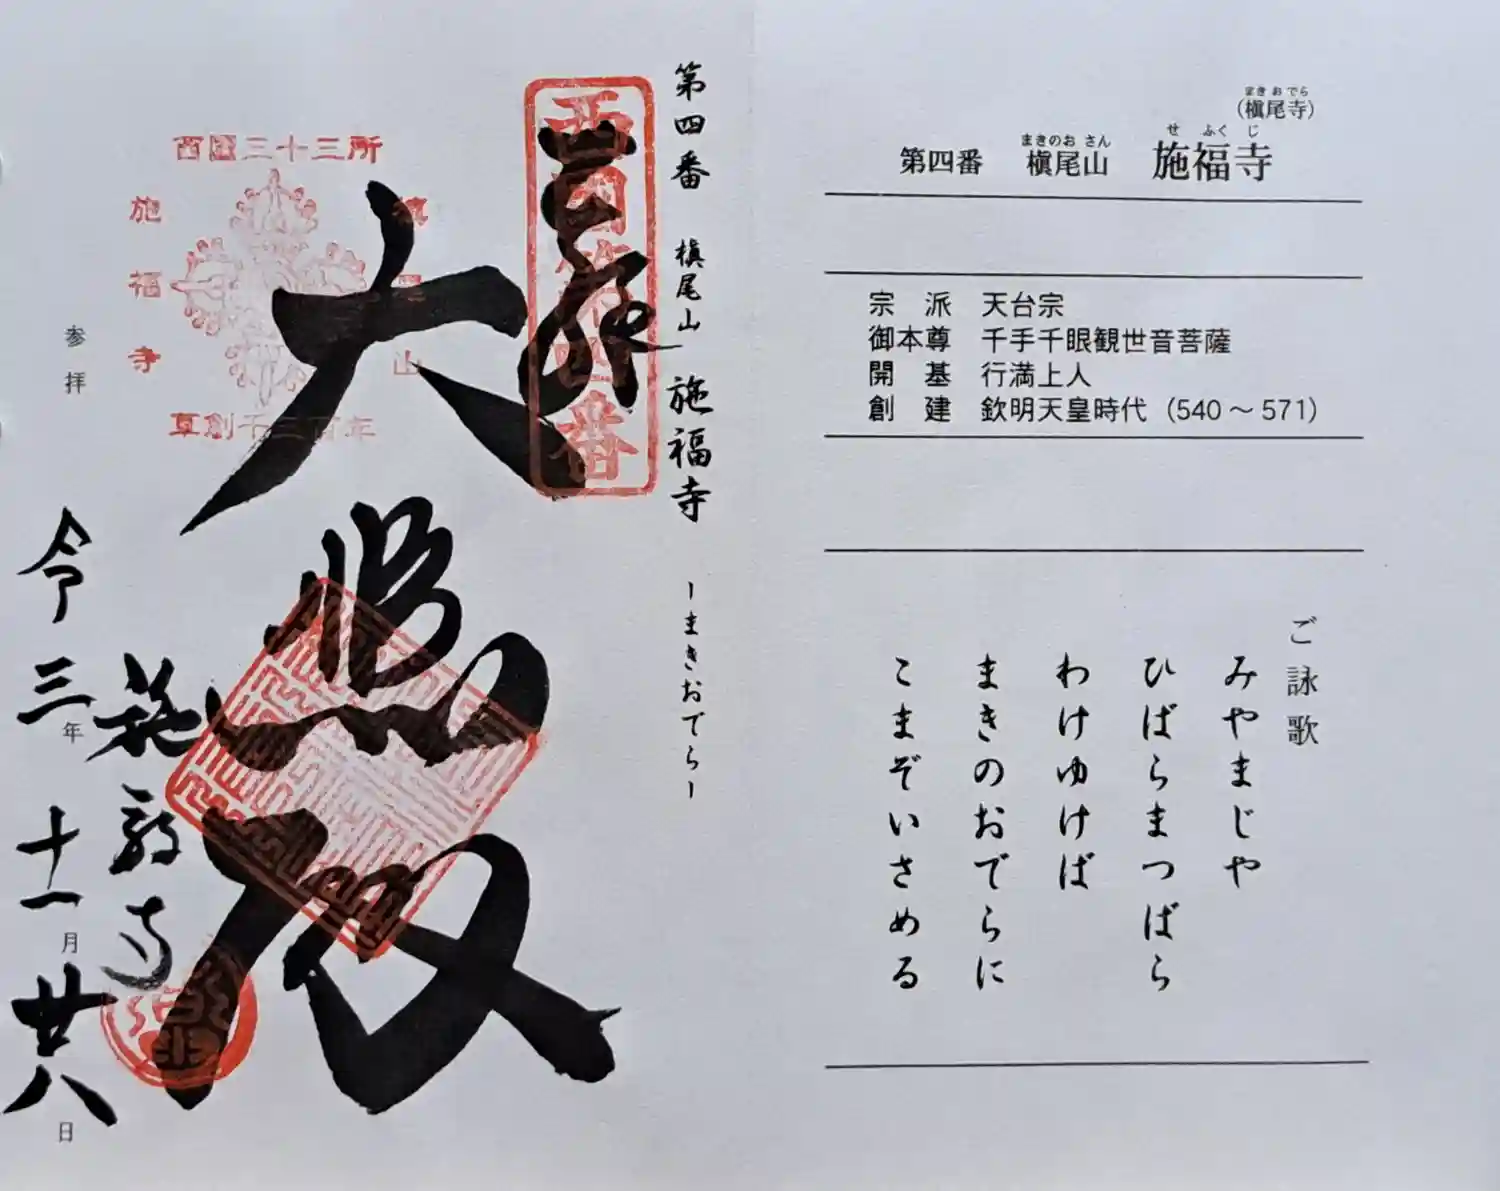 (槇尾寺)
まきおでら
第四番 槇尾山 施福寺
まきのおさん せふくじ
宗派 天台宗
御本尊 千手千眼観世音菩薩
開基 行満上人
創建 欽明天皇時代(540~571)
ご詠歌
みやまじや
ひばらまつばら
わけゆけば
まきのおでらに
こまぞいさめる
第四番 槇尾山 施福寺 ーまきおでらー
西国第四番
奉拝
大悲殿
西國三十三所
槙尾山
施福寺
草創千三百年
施福寺
参拝
令三年十一月廿八日